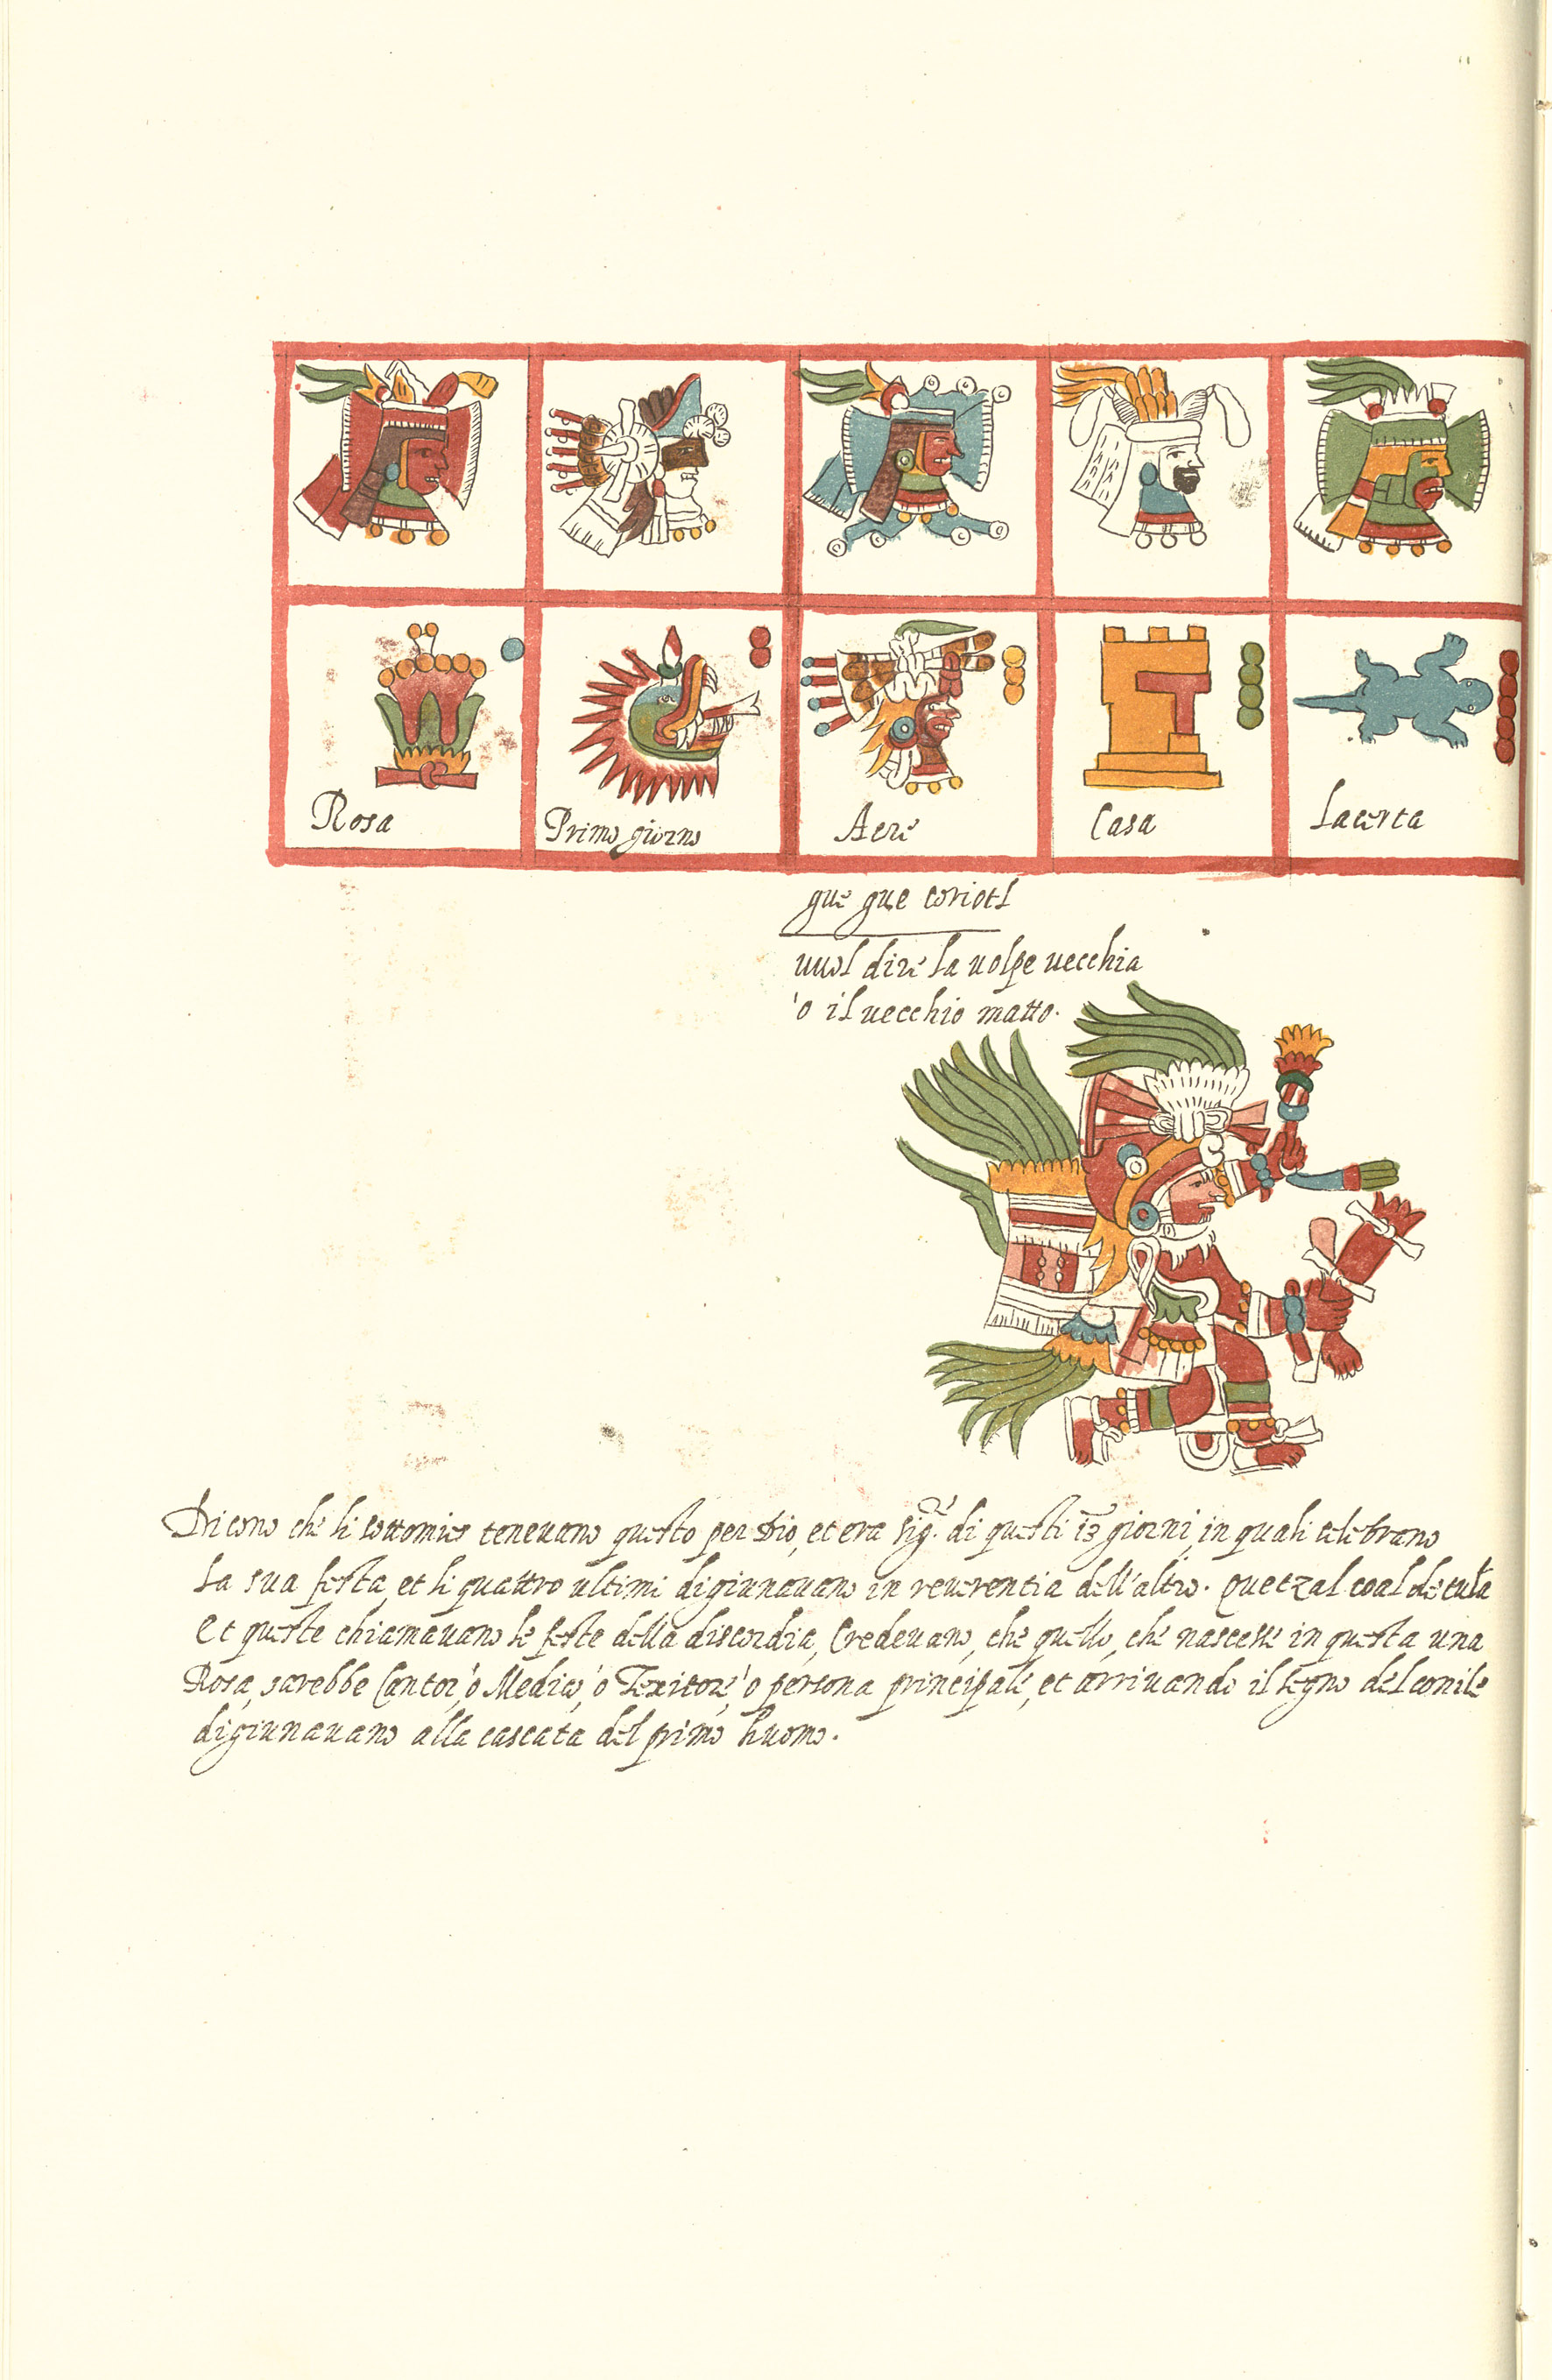 Rosa
Primo giorno
Aere
Casa
Lacerta
gue gue coriotl
vuol dire la uolpe uecchia
ò il uecchio matto.
Dicono che li Ottomies teneuano questo per Dio, et era sig.re di questi 13 giorni, in quali celebrano
La sua festa, et li quattro ultimi digiunauano in reuerentia dell'altro. Quetzal coal de tula
et queste chiamauano le feste della discordia, Credeuano, che quello, che nascesse in questa una
Rosa, sarebbe Cantor, ò Medico, ò Texitore, ò persona principale, et arriuando il segno del conile
digiunauano alla cascata del primo huomo.